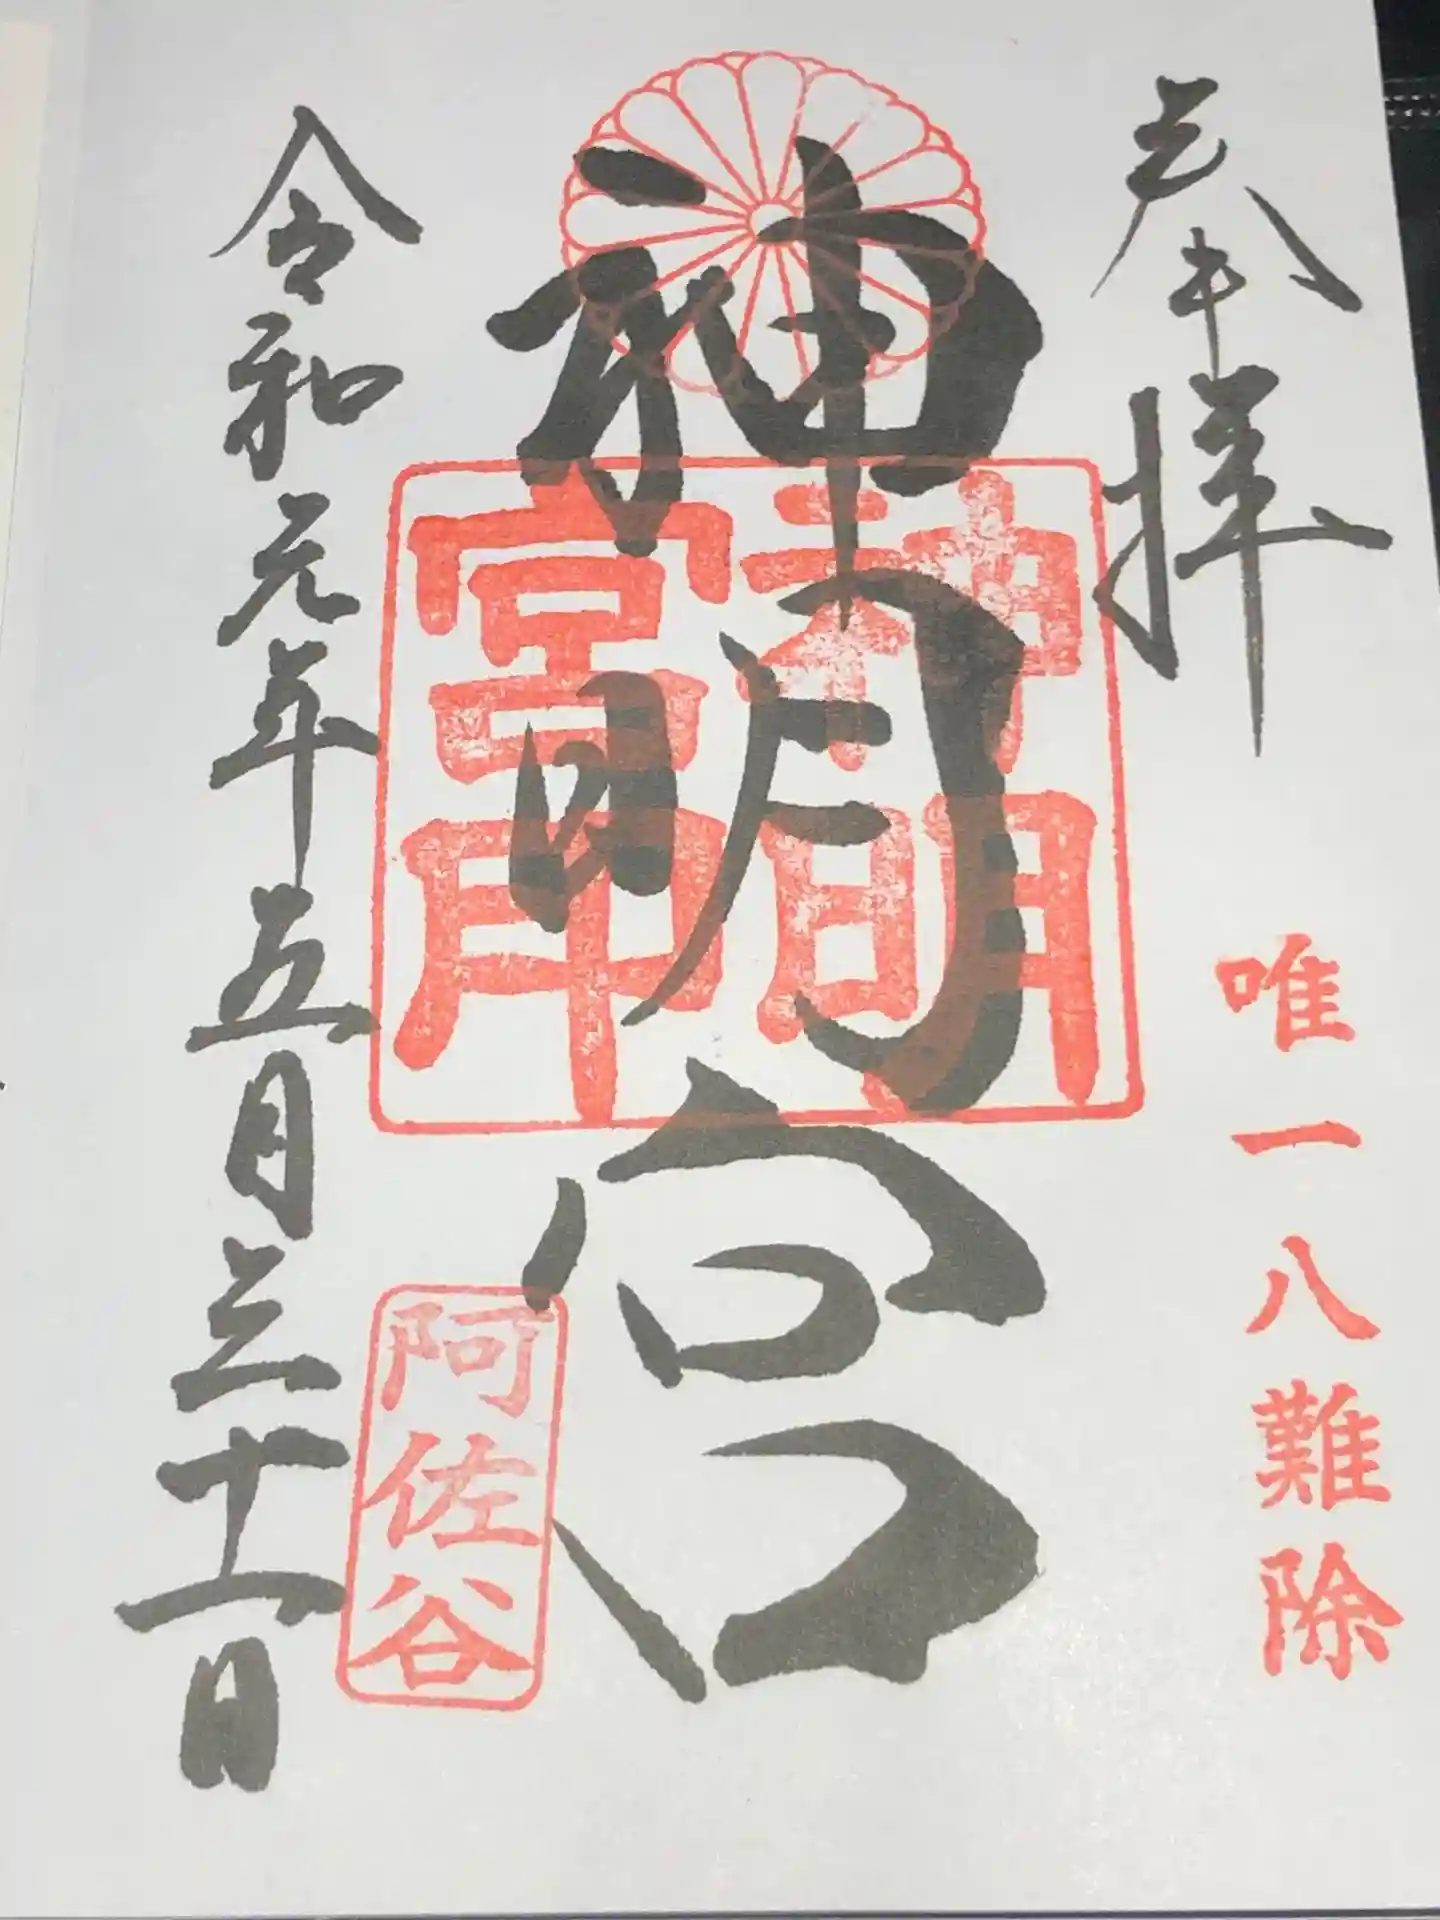 奉拝
唯一八難除
神明宮
神明
宮印
阿佐谷
令和元年五月三十一日